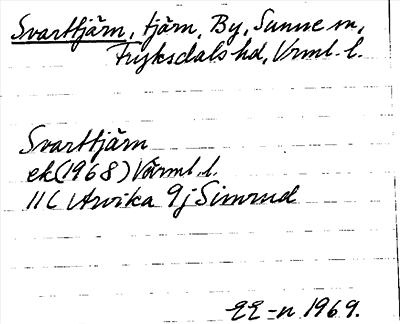 Svarttjärn, tjärn, By, Sunne sn,
Fryksdals hd, Vrml. l.
Svarttjärn
ek (1968) Värml. l.
11C Arvika 9j Simrud
EE-n 1969.